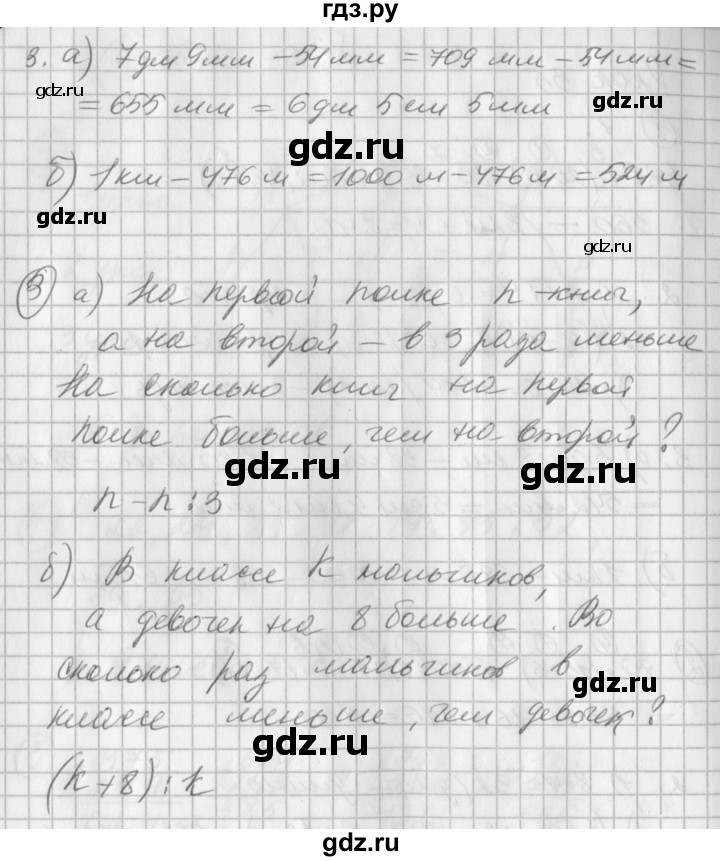 гдз.ру
3. а) 7дм 9мм - 54мм = 709 мм - 54мм =
gdz.ru
gdz.ru
= 655 мм = 6дм 5см 5мм
gdz.ru
б) 1км - 476м = 1000 м - 476м = 524 м
gdz.ru
3 а) На первой полке n - книг,
а на второй - в 3 раза меньше
На сколько книг на первой
полке больше, чем на второй?
gdz.ru
gdz.ru
n - n : 3
б) В классе k мальчиков,
а девочек на 8 больше. Во
сколько раз мальчиков в
gdz.ru
классе меньше, чем девочек?
gdz.ru
(k + 8) : k
gdz.ru